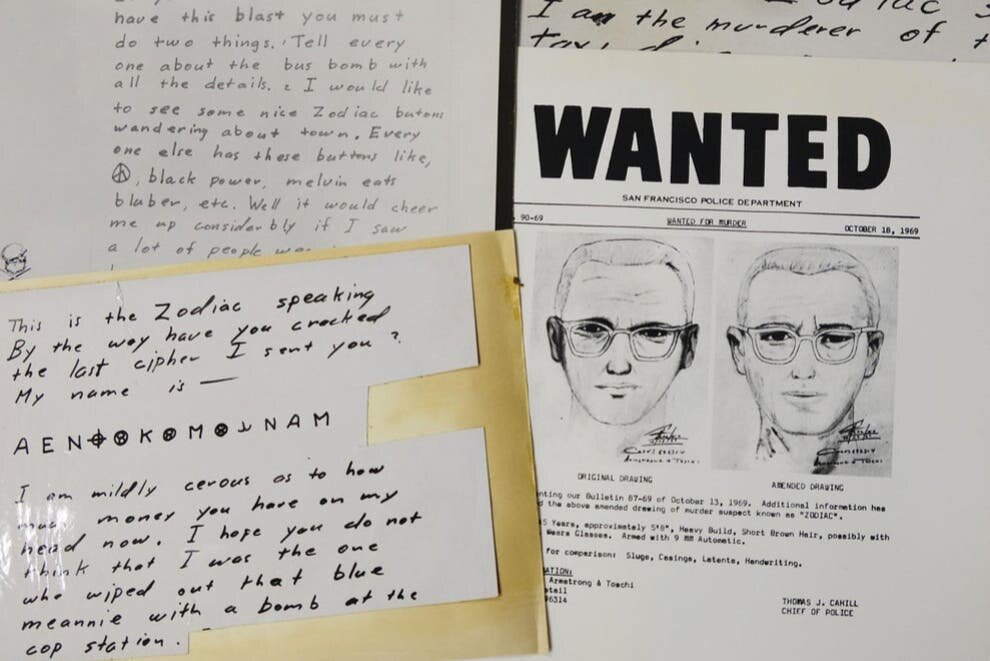 have this blast you must
do two things. Tell every
one about the bus bomb with
all the details. 2 I would like
to see some nice Zodiac butons
wandering about town. Every
one else has these buttons like,
☮, black power, melvin eats
bluber, etc. Well it would cheer
me up considerbly if I saw
a lot of people
This is the Zodiac speaking
By the way have you cracked
the last cipher I sent you?
My name is —
A E N ⌖ ⊗ K ⊗ M ⊗ N A M
I am mildly cerous as to how
much money you have on my
head now. I hope you do not
think that I was the one
who wiped out that blue
meannie with a bomb at the
cop station.
I am the murderer of
WANTED
SAN FRANCISCO POLICE DEPARTMENT
90-69 WANTED FOR MURDER OCTOBER 18, 1969
ORIGINAL DRAWING AMENDED DRAWING
nting our Bulletin 87-69 of October 13, 1969. Additional information has
d the above amended drawing of murder suspect known as "ZODIAC".
5 Years, approximately 5'8", Heavy Build, Short Brown Hair, possibly with
Wears Glasses. Armed with 9 MM Automatic.
for comparison: Slugs, Casings, Latents, Handwriting.
ATION:
Armstrong & Toschi
etail
96314
THOMAS J. CAHILL
CHIEF OF POLICE